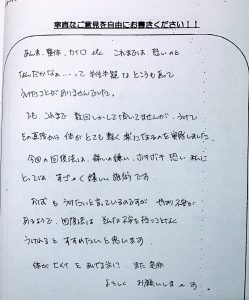 率直なご意見を自由にお書きください！！
あんま、整体、カイロ etc これまでは 恐いのと
なんだかなぁ…、って 半信半疑な ところもあって
うけたことが ありませんでした。
でも、これまで 数回しかして頂いてませんが、うけて
その直後から 体が とても軽く 楽になるのを 実感しました。
今回の 回復法は、痛いの嫌い、ボキボキ 恐い 私に
とっては すごーく 嬉しい 施術です。
も うけたいと 言っているのですが
あるようで、回復法は そんな不安を 持つことなく
うけられると すすめたいと 思います。
体が 悲鳴を あげる前に、また 是非
よろしく お願いします。